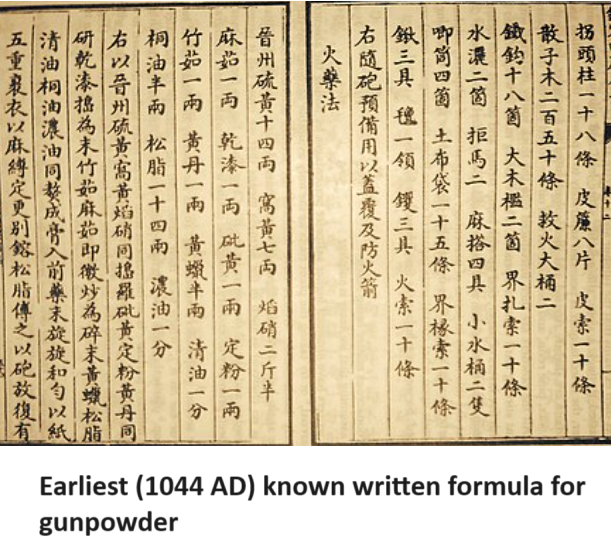 拐頭柱一十八條 皮簾八片 皮索一十條
散子木二百五十條 救火大桶二
鐵鈎十八箇 大木檻二箇 界扎索一十條
水濃二箇 拒馬二 麻搭四具 小水桶二隻
唧筒四箇 土布袋一十五條 界椽索一十條
鍬三具 氊一領 钁三具 火索一十條
右隨砲預備用以蓋覆及防火箭
火藥法
晉州硫黃十四兩 窩黃七兩 焰硝二斤半
麻茹一兩 乾漆一兩 砒黃一兩 定粉一兩
竹茹一兩 黃丹一兩 黃蠟半兩 清油一分
桐油半兩 松脂一十四兩 濃油一分
右以晉州硫黃窩黃焰硝同搗羅砒黃定粉黃丹同
研乾漆搗為末竹茹麻茹即微炒為碎末黃蠟松脂
清油桐油濃油同熬成膏入前藥末旋旋和勻以紙
五重裹衣以麻縛定更別鎔松脂傅之以砲放復有
Earliest (1044 AD) known written formula for
gunpowder